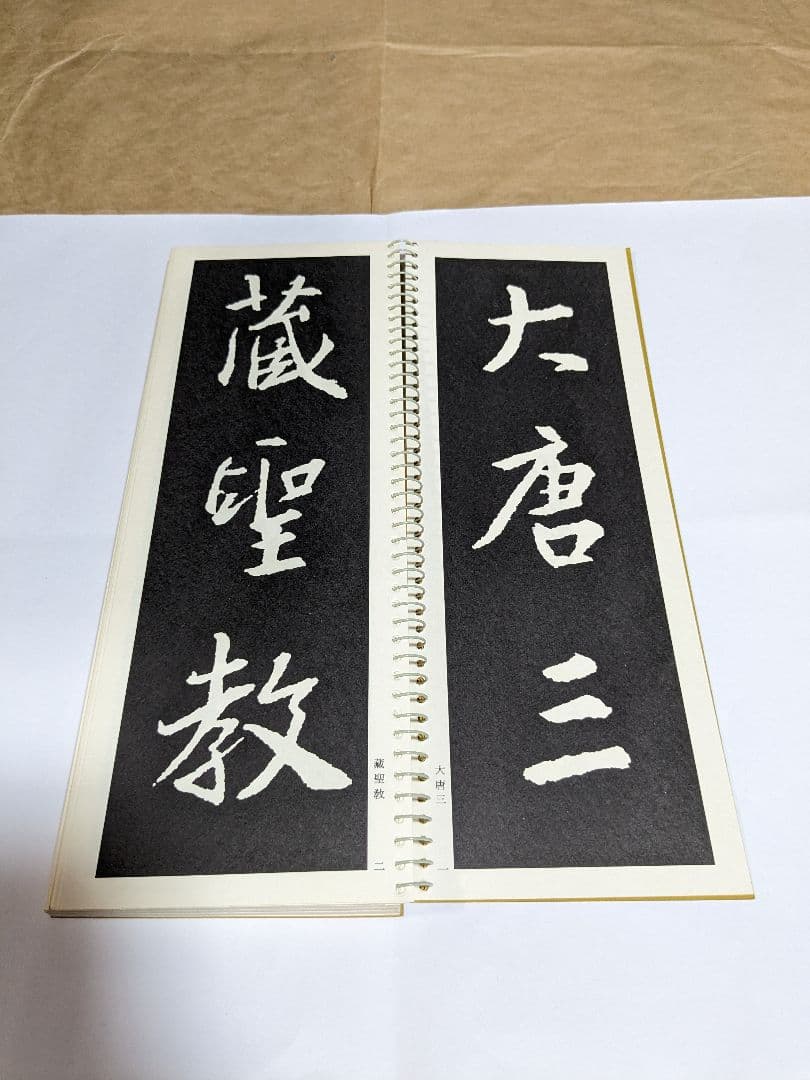 大唐三
大唐三
一
藏聖教
藏聖教
二